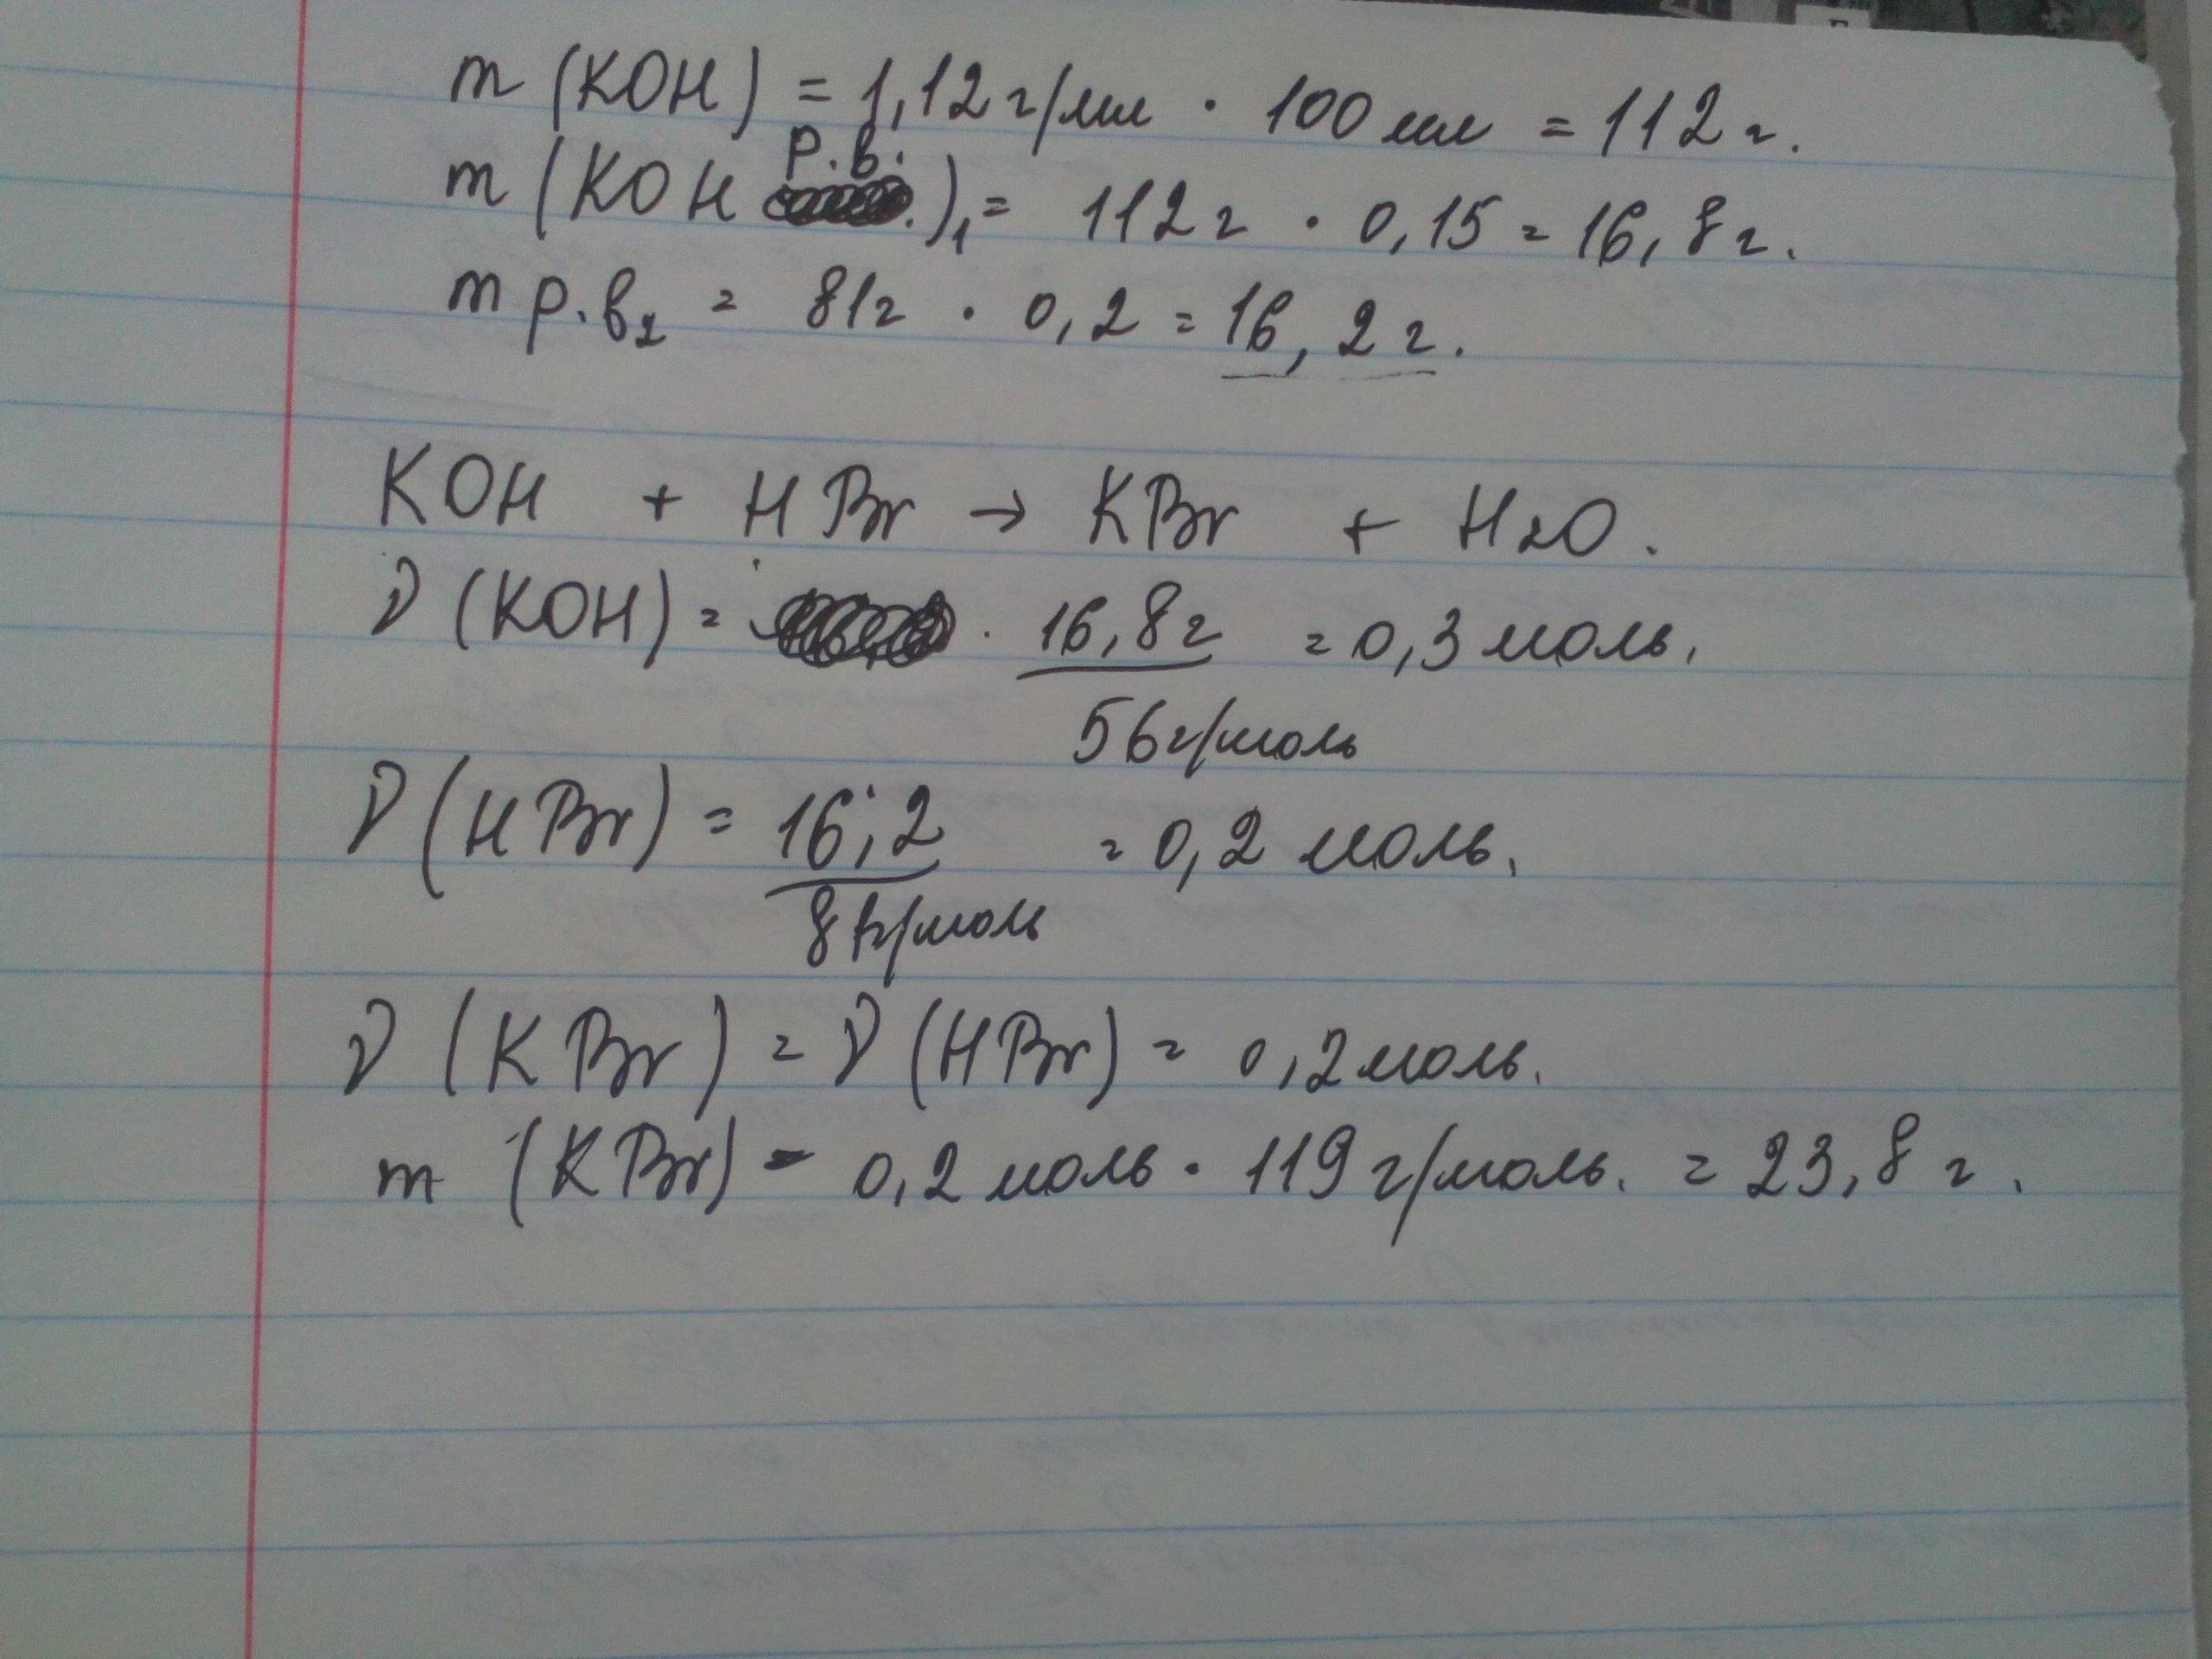 m (KOH) = 1,12 г/мл · 100 мл = 112 г.
m (KOH р.в.)₁ = 112 г · 0,15 = 16,8 г.
m р.в₂ = 81г · 0,2 = 16,2 г.
KOH + HBr → KBr + H₂O.
ν (KOH) = 16,8г = 0,3 моль.
56г/моль
ν (HBr) = 16,2 = 0,2 моль.
81г/моль
ν (KBr) = ν (HBr) = 0,2 моль.
m (KBr) = 0,2 моль · 119 г/моль. = 23,8 г.